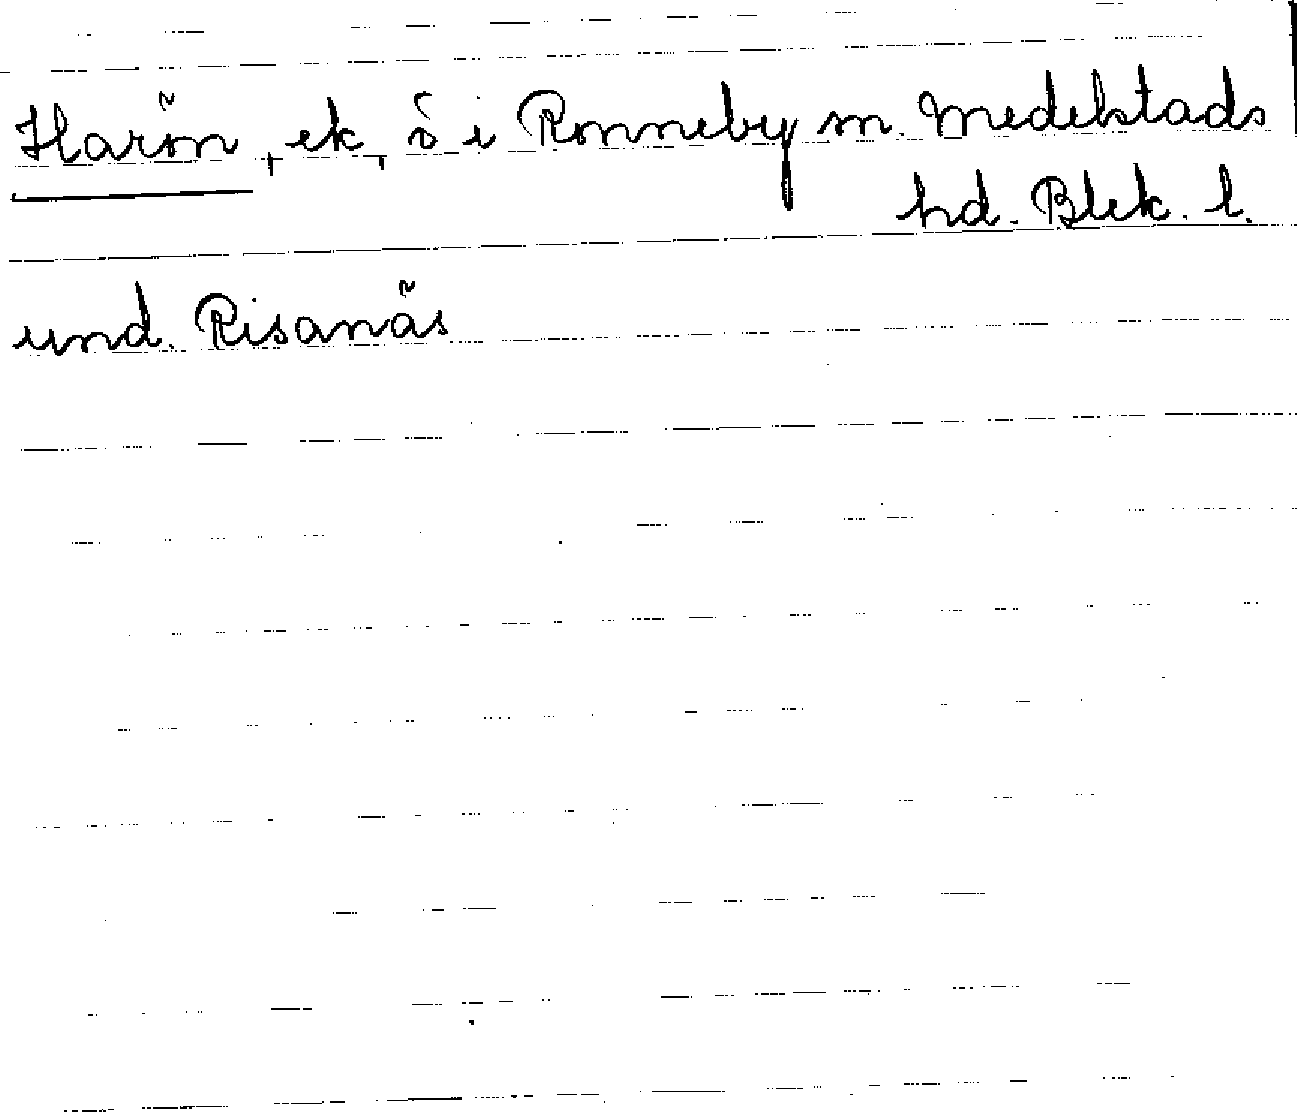 Harön, ek, ö i Ronneby sn. Medelstads
hd. Blek. l.
und. Risanäs